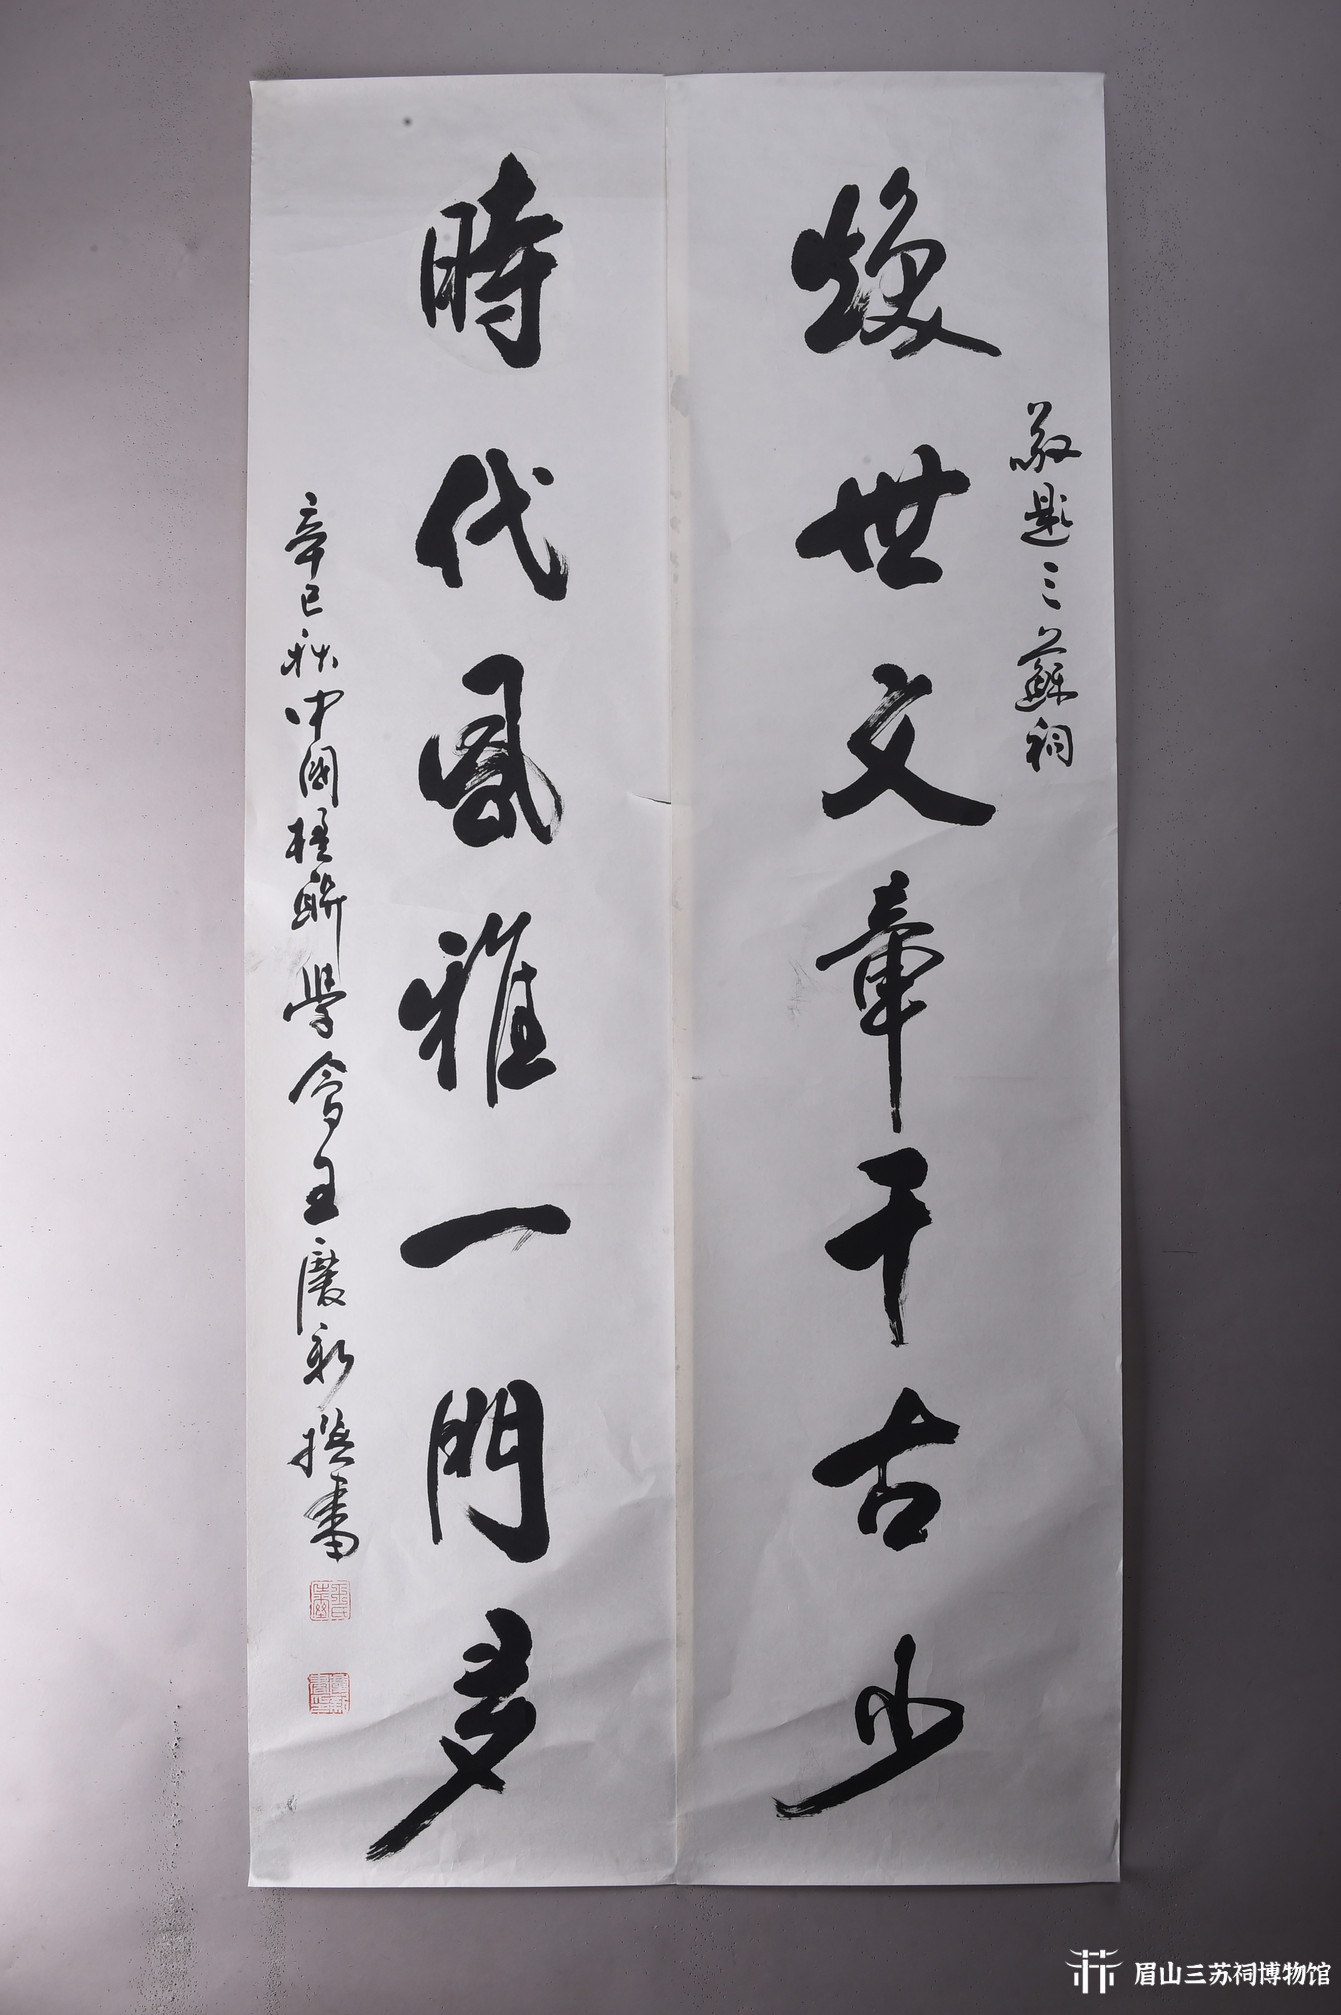 敬題三蘇祠
煥世文章千古少
時代風雅一門多
辛巳秋中國楹聯學會王慶新撰書
眉山三苏祠博物馆